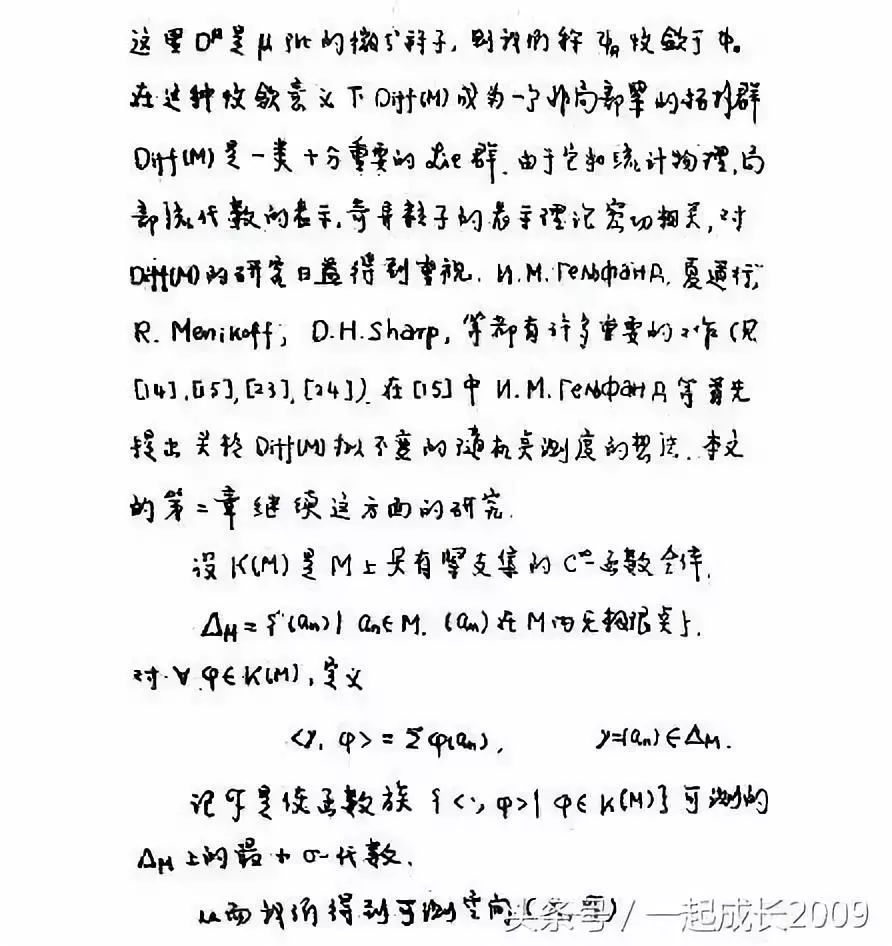 这里D^μ是μ阶的微分算子,则我们称ψn收敛于ψ。
在这种收敛意义下Diff(M)成为一个非局部紧的拓扑群
Diff(M)是一类十分重要的Lie群.由于它和统计物理,局
部流代数的表示,奇异粒子的表示理论密切相关,对
Diff(M)的研究日益得到重视. И.М.Гельфанд,夏道行,
R. Menikoff, D.H.Sharp,等都有许多重要的工作(见
[14],[15],[23],[24]).在[15]中И.М.Гельфанд等首先
提出关于Diff(M)拟不变的随机点测度的想法.本文
的第二章继续这方面的研究.
设K(M)是M上具有紧支集的C^∞函数全体,
Δ_M={(a_n)| a_n∈M. (a_n)在M内无极限点}.
对∀φ∈K(M),定义
<γ, φ>=Σφ(a_n), γ=(a_n)∈Δ_M.
记F是使函数族{<·,φ>| φ∈K(M)}可测的
Δ_M上的最小σ-代数.
从而我们得到可测空间(
头条号 / 一起成长2009